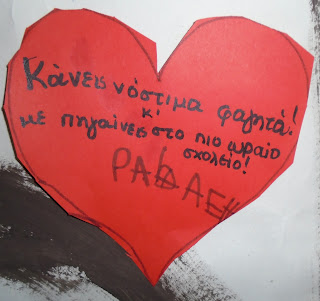 Κάνεις νόστιμα φαγητά!
κ'
με πηγαίνεις στο πιο ωραίο
σχολείο!
ΡΑΦΑΕΛ